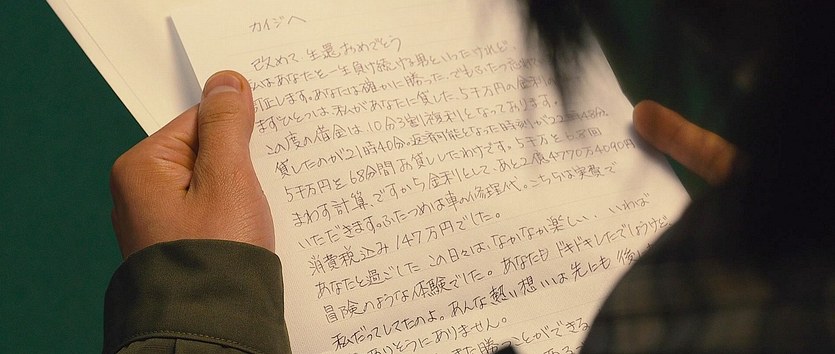 カイジへ
改めて 生還おめでとう
私はあなたを一生負け続ける男といったけれど、
訂正します。あなたは確かに勝った。でもふたつ
まずひとつは、私があなたに貸した、5千万の金利の
この度の借金は、10分3割複利となっております。
貸したのが21時40分。返済可能となった時刻が22時48分
5千万円を68分間お貸ししたわけです。5千万を6.8回
まわす計算、ですから金利として、あと2億4770万4090円
いただきます。ふたつめは車の修理代。こちらは実費で
消費税込み147万円でした。
あなたと過ごしたこの日々は、なかなか楽しい、いわば
冒険のような体験でした。あなたもドキドキしたでしょうけど、
私だってしてたのよ。あんな熱い想いは先にも後に
ありそうにありません。
また勝つことができる